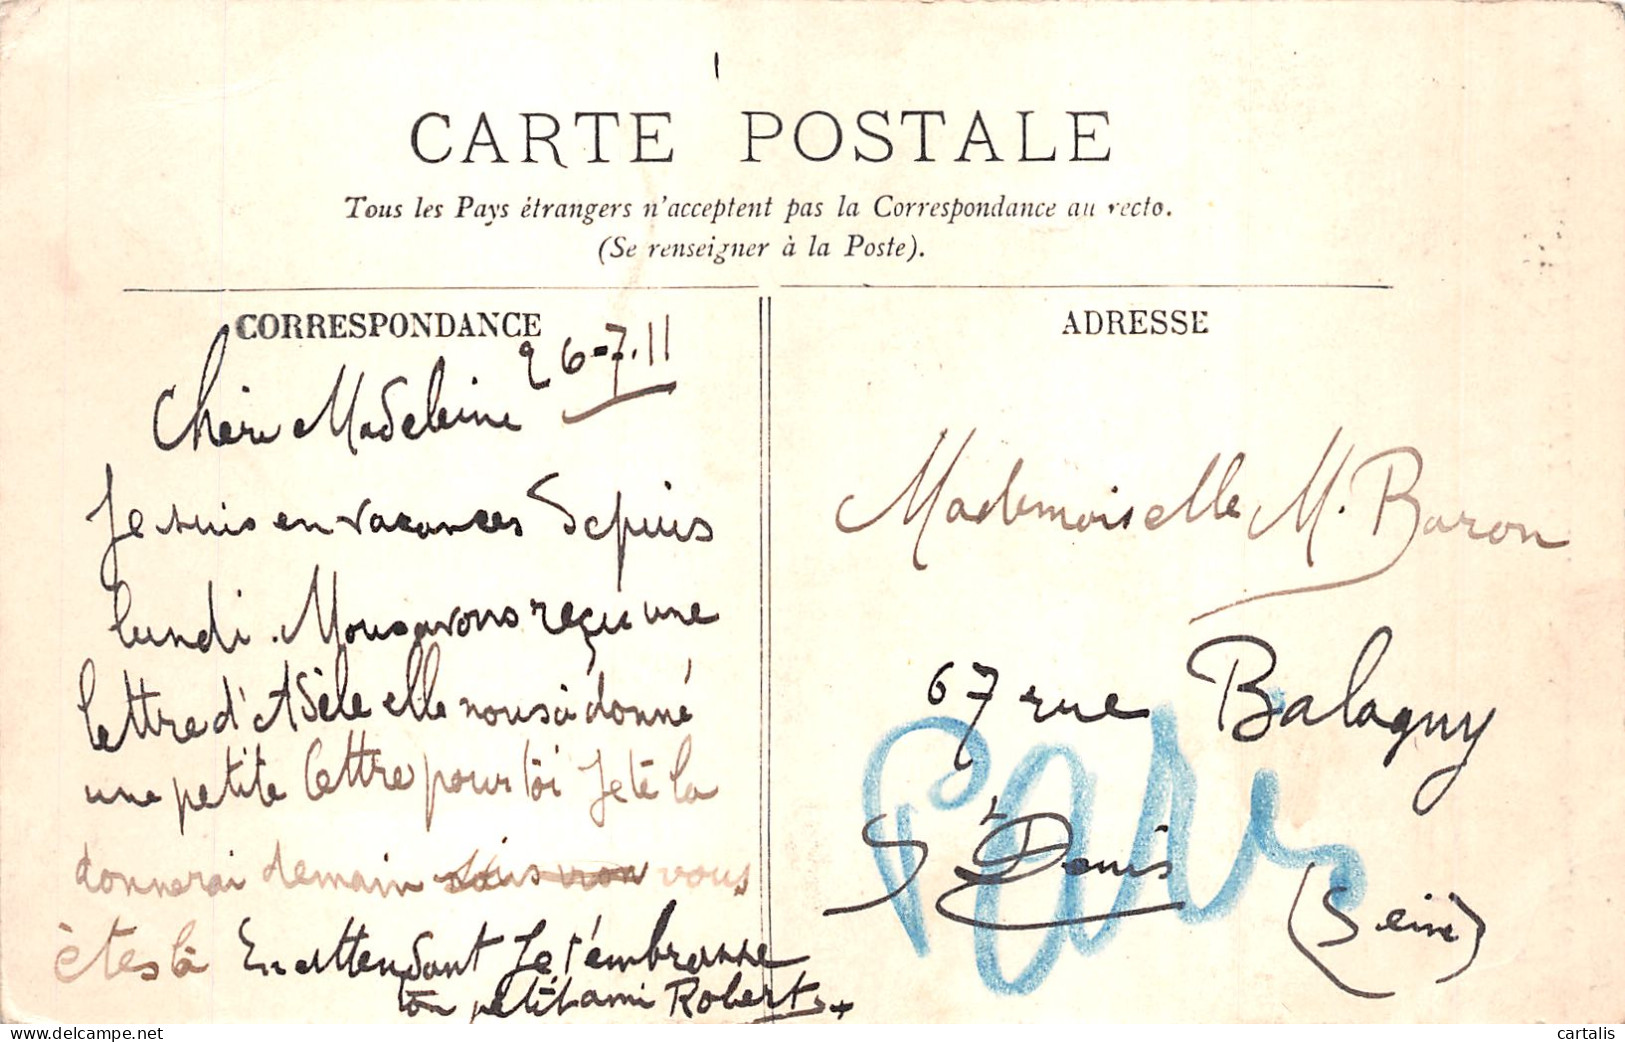 CARTE POSTALE
Tous les Pays étrangers n'acceptent pas la Correspondance au recto.
(Se renseigner à la Poste).
CORRESPONDANCE
26-7.11
Chère Madeleine
Je suis en vacances depuis
lundi. Nous avons reçu une
lettre d'Adèle elle nous à donné
une petite lettre pour toi Je te la
donnerai demain vous
êtes là En attendant Je t'embrasse
ton petit ami Robert
ADRESSE
Mademoiselle M. Baron
67 rue Balagny
St Denis
(Seine)
Paris
cartalis